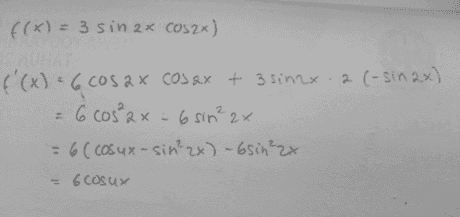 f(x) = 3 sin 2x cos2x)
f'(x) = 6 cos 2x cos 2x + 3 sin2x . 2 (-sin 2x)
= 6 cos² 2x - 6 sin² 2x
= 6 (cos4x - sin² 2x) - 6sin² 2x
= 6 cos4x